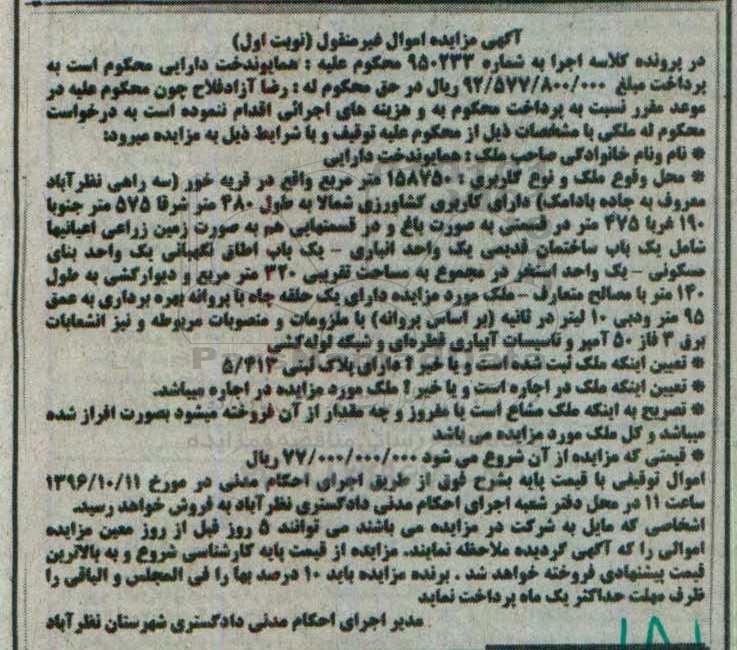 آگهی مزایده اموال غیرمنقول (نوبت اول)
در پرونده کلاسه اجرا به شماره ۹۵۰۲۳۳ محکوم علیه : همایوندخت دارایی محکوم است به
پرداخت مبلغ ۹۲/۵۷۷/۸۰۰/۰۰۰ ریال در حق محکوم له : رضا آزادفلاح چون محکوم علیه در
موعد مقرر نسبت به پرداخت محکوم به و هزینه های اجرائی اقدام ننموده است به درخواست
محکوم له ملکی با مشخصات ذیل از محکوم علیه توقیف و با شرایط ذیل به مزایده میرود:
* نام ونام خانوادگی صاحب ملک : همایوندخت دارایی
* محل وقوع ملک و نوع کاربری : ۱۵۸۷۵۰ متر مربع واقع در قریه خور (سه راهی نظرآباد
معروف به جاده بادامک) دارای کاربری کشاورزی شمالا به طول ۴۸۰ متر شرقا ۵۷۵ متر جنوبا
۱۹۰ غربا ۴۷۵ متر در قسمتی به صورت باغ و در قسمتهایی هم به صورت زمین زراعی اعیانیها
شامل یک باب ساختمان قدیمی یک واحد انباری - یک باب اطاق نگهبانی یک واحد بنای
مسکونی - یک واحد استخر در مجموع به مساحت تقریبی ۳۲۰ متر مربع و دیوارکشی به طول
۱۴۰ متر با مصالح متعارف - ملک مورد مزایده دارای یک حلقه چاه با پروانه بهره برداری به عمق
۹۵ متر ودبی ۱۰ لیتر در ثانیه (بر اساس پروانه) با ملزومات و منصوبات مربوطه و نیز انشعابات
برق ۳ فاز ۵۰ آمپر و تاسیسات آبیاری قطره‌ای و شبکه لوله‌کشی
* تعیین اینکه ملک ثبت شده است و یا خیر؟ دارای پلاک ثبتی ۵/۴۱۳
* تعیین اینکه ملک در اجاره است و یا خیر؟ ملک مورد مزایده در اجاره میباشد.
* تصریح به اینکه ملک مشاع است یا مفروز و چه مقدار از آن فروخته میشود بصورت افراز شده
میباشد و کل ملک مورد مزایده می باشد
* قیمتی که مزایده از آن شروع می شود ۷۷/۰۰۰/۰۰۰/۰۰۰ ریال
اموال توقیفی با قیمت پایه بشرح فوق از طریق اجرای احکام مدنی در مورخ ۱۳۹۶/۱۰/۱۱
ساعت ۱۱ در محل دفتر شعبه اجرای احکام مدنی دادگستری نظر آباد به فروش خواهد رسید.
اشخاصی که مایل به شرکت در مزایده می باشند می توانند ۵ روز قبل از روز معین مزایده
اموالی را که آگهی گردیده ملاحظه نمایند. مزایده از قیمت پایه کارشناسی شروع و به بالاترین
قیمت پیشنهادی فروخته خواهد شد . برنده مزایده باید ۱۰ درصد بها را فی المجلس و الباقی را
ظرف مهلت حداکثر یک ماه پرداخت نماید
مدیر اجرای احکام مدنی دادگستری شهرستان نظرآباد